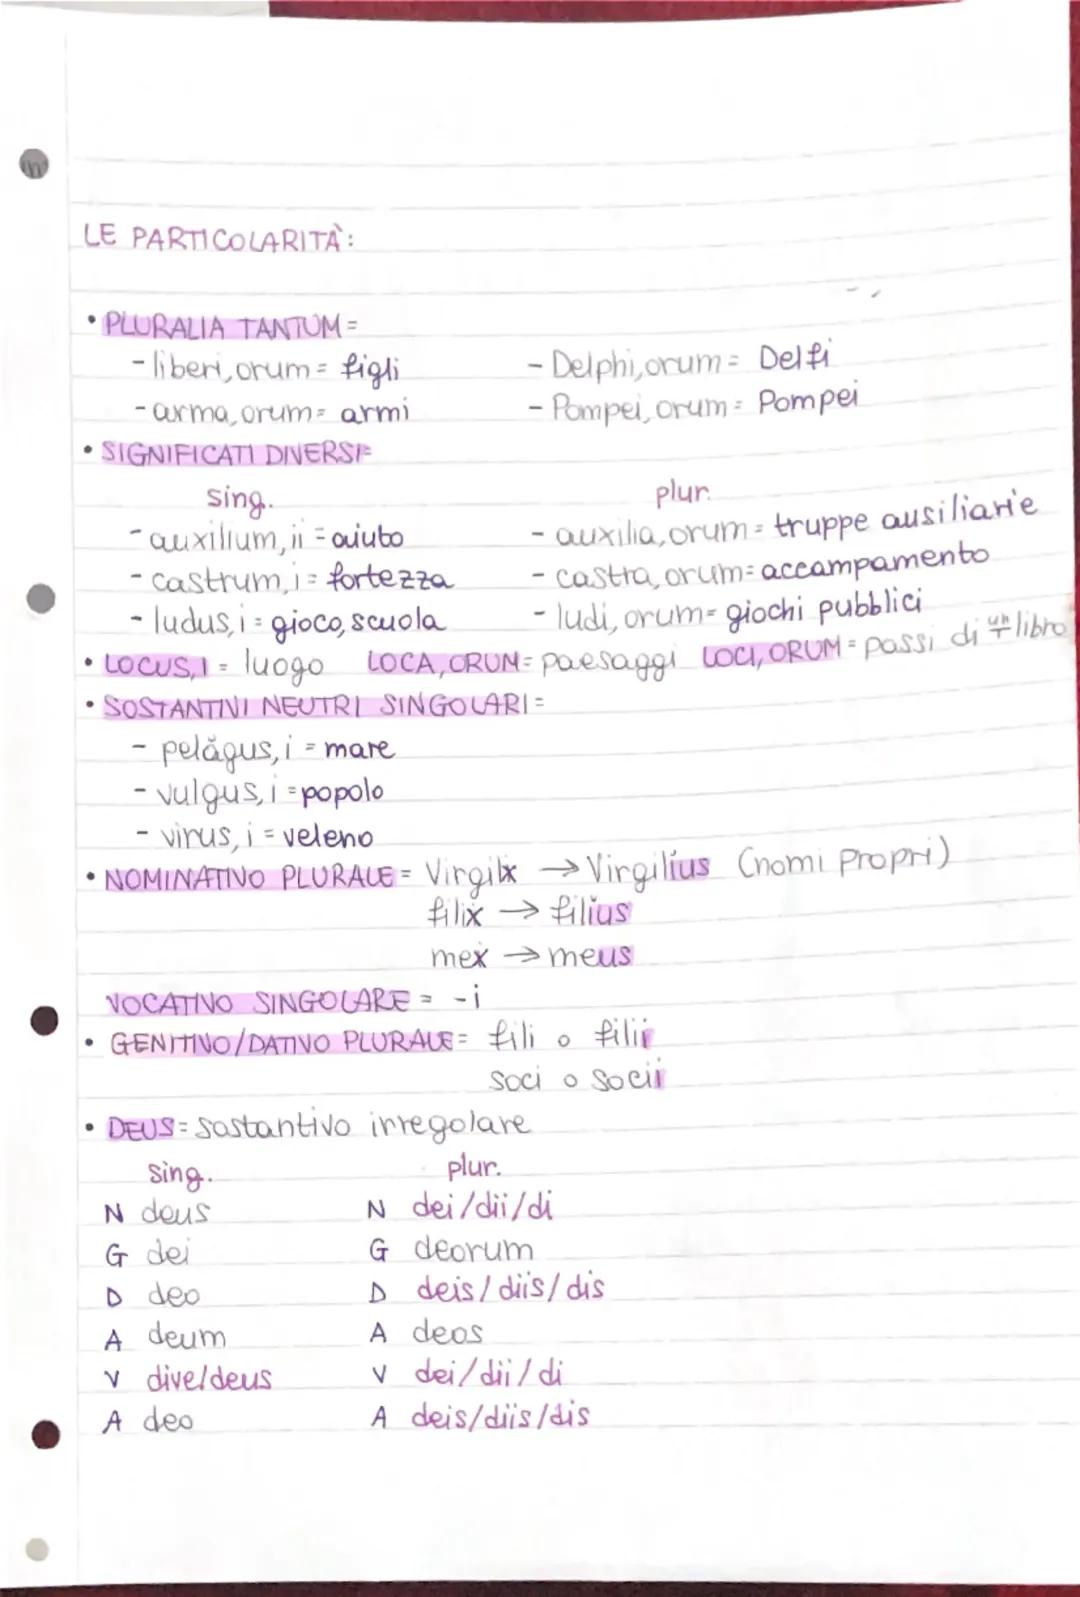 LE PARTICOLARITÀ:
• PLURALIA TANTUM =
- liberi, orum = figli - Delphi, orum = Delfi
- arma, orum = armi - Pompei, orum = Pompei
• SIGNIFICATI DIVERSI =
sing. plur.
- auxilium, ii = aiuto - auxilia, orum = truppe ausiliarie
- castrum, i = fortezza - castra, orum = accampamento
- ludus, i = gioco, scuola - ludi, orum = giochi pubblici
• LOCUS, I = luogo LOCA, ORUM = paesaggi LOCI, ORUM = passi di un libro
• SOSTANTIVI NEUTRI SINGOLARI =
- pelăgus, i = mare
- vulgus, i = popolo
- virus, i = veleno
• NOMINATIVO PLURALE = Virgili → Virgilius (nomi propri)
fili → filius
me → meus
VOCATIVO SINGOLARE = -i
• GENITIVO/DATIVO PLURALE = fili o filii
soci o socii
• DEUS = sostantivo irregolare
sing. plur.
N deus N dei/dii/di
G dei G deorum
D deo D deis/diis/dis
A deum A deos
V dive/deus V dei/dii/di
A deo A deis/diis/dis